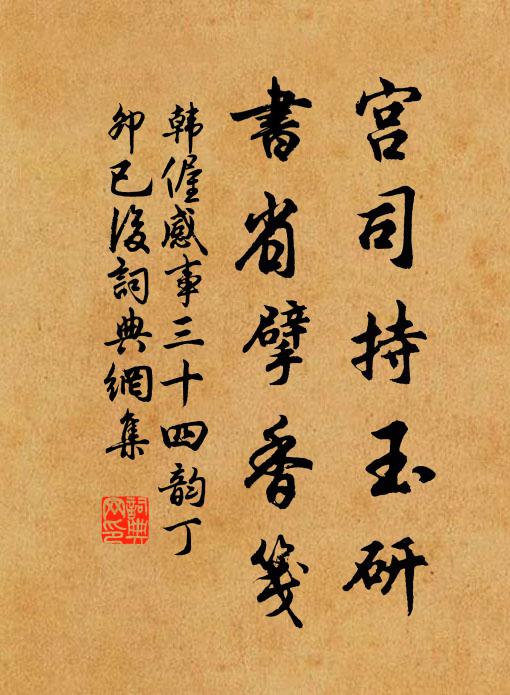 宫司持玉研
書省擘香箋
韩偓感事三十四韵丁
卯已後詞典網集
詞典网印